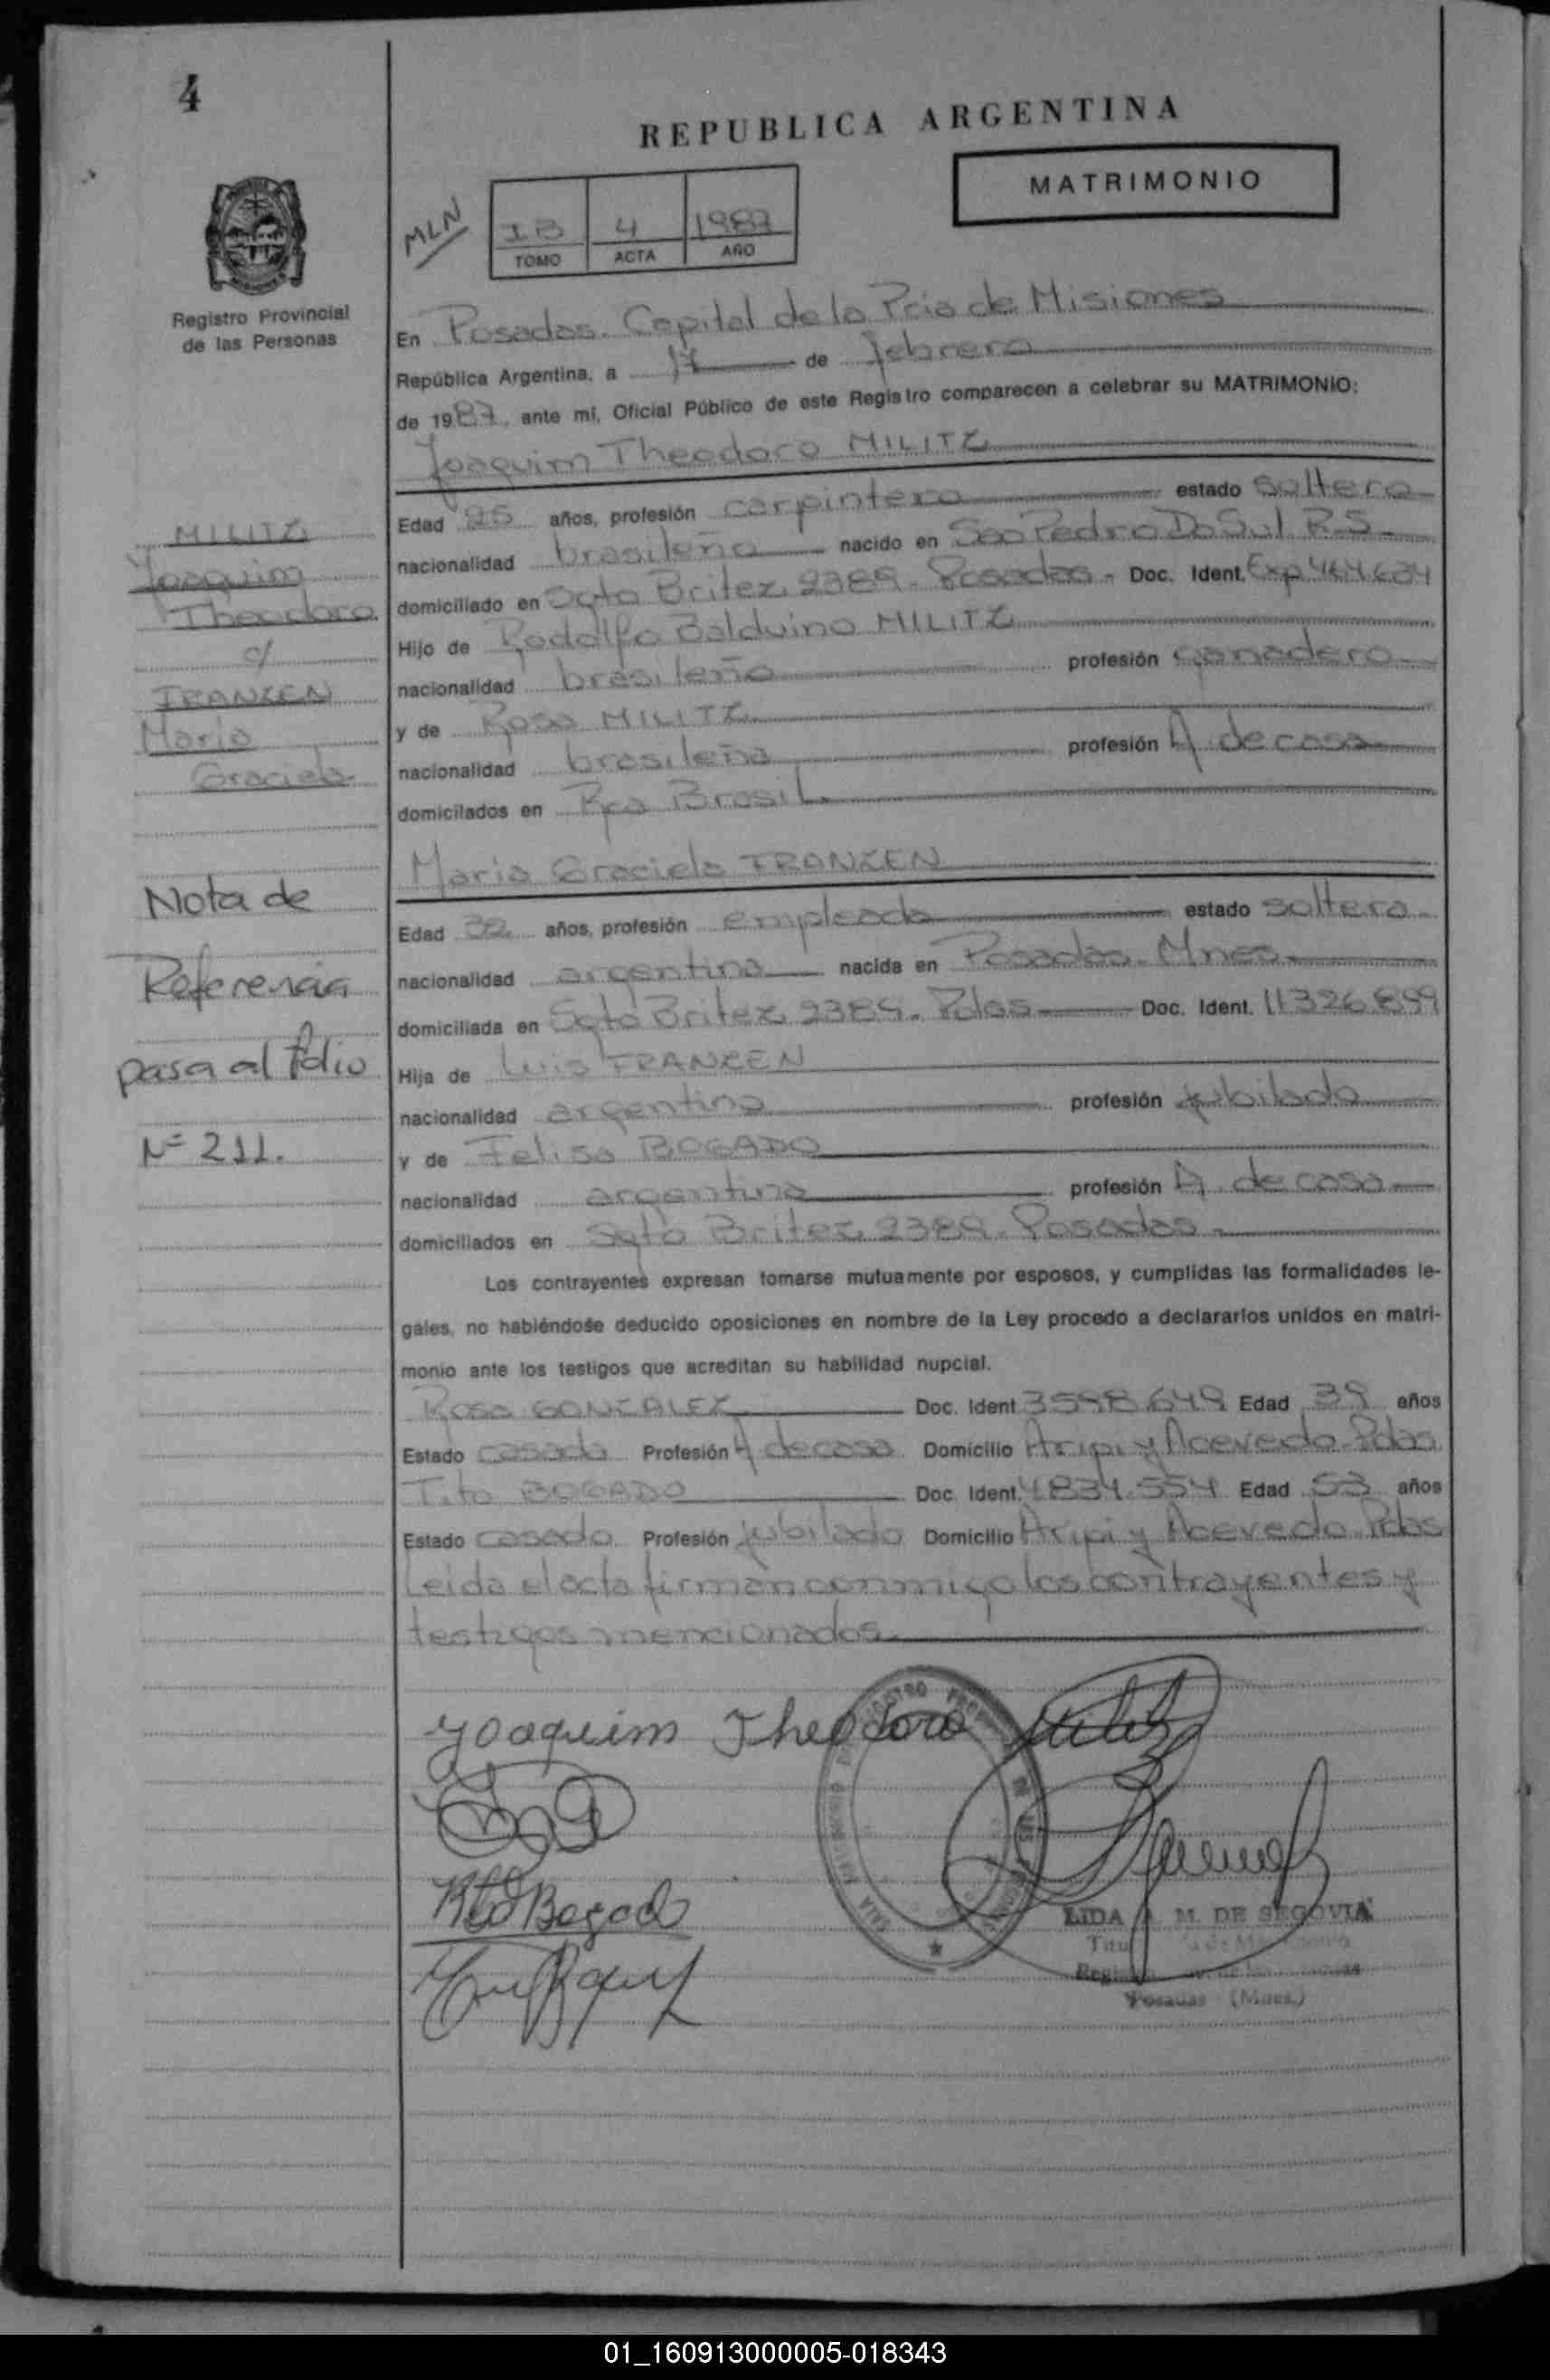 4
REPUBLICA ARGENTINA
MATRIMONIO
MLN
IB 4 1987
TOMO ACTA AÑO
Registro Provincial
de las Personas
En Posadas. Capital de la Pcia de Misiones
República Argentina, a 17 de febrero
de 1987, ante mí, Oficial Público de este Registro comparecen a celebrar su MATRIMONIO:
Joaquim Theodoro MILITZ
Edad 25 años, profesión carpintero estado soltero
nacionalidad brasileña nacido en Sao Pedro Do Sul R.S.
domiciliado en Sgto Britez 2389. Posadas. Doc. Ident. Exp 464.634
Hijo de Rodolfo Balduino MILITZ
nacionalidad brasileño profesión ganadero
y de Rosa MILITZ
nacionalidad brasileña profesión A. de casa
domicilados en Rca Brasil.
MILITZ
Joaquim
Theodoro
c/
FRANZEN
Maria
Graciela.
Maria Graciela FRANZEN
Edad 32 años, profesión empleada estado soltera.
nacionalidad argentina nacida en Posadas. Mnes.
domiciliada en Sgto Britez 2389. Pdas Doc. Ident. 11.326.899
Hija de Luis FRANZEN
nacionalidad argentino profesión jubilado
y de Felisa BOGADO
nacionalidad argentina profesión A. de casa
domiciliados en Sgto Britez 2389. Posadas.
Nota de
Referencia
pasa al folio
Nº 211.
Los contrayentes expresan tomarse mutuamente por esposos, y cumplidas las formalidades le-
gales, no habiéndose deducido oposiciones en nombre de la Ley procedo a declararlos unidos en matri-
monio ante los testigos que acreditan su habilidad nupcial.
Rosa GONZALEZ Doc. Ident. 3598.649 Edad 39 años
Estado casada Profesión A de casa Domicilio Aripi y Acevedo. Pdas
Tito BOGADO Doc. Ident. 4.834.554 Edad 53 años
Estado casado Profesión jubilado Domicilio Aripi y Acevedo. Pdas
Leida el acta firman conmigo los contrayentes y
testigos mencionados.
Joaquim Theodoro Militz
Bogado
LIDA M. DE SEGOVIA
Posadas (Mnes.)
01_160913000005-018343